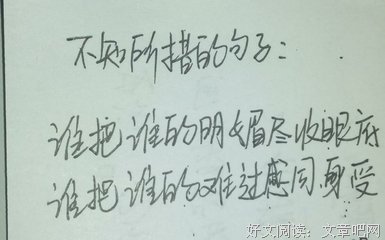 不知所措的句子：
谁把谁的明媚尽收眼底
谁把谁的难过感同身受
好文阅读：文章吧网